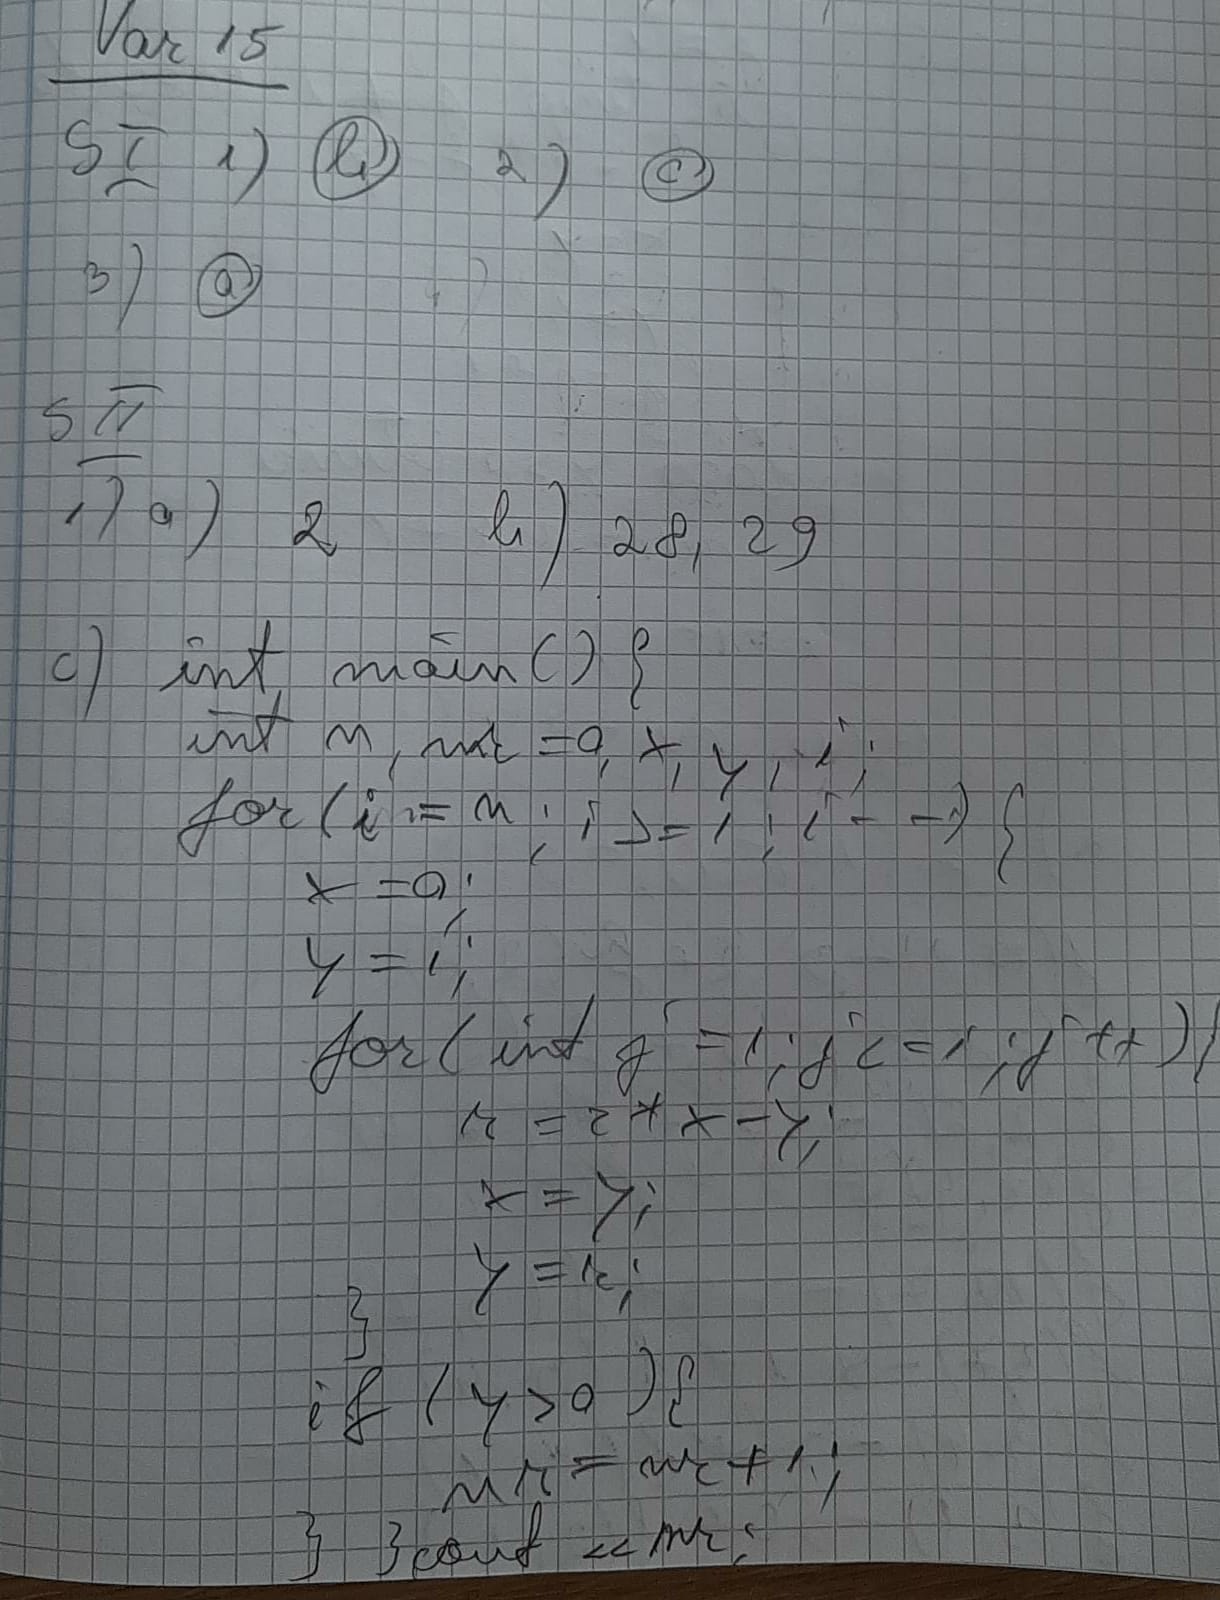 Var 15
S I 1) b 2) c
3) a
S II
1) a) 2 b) 28, 29
c) int main() {
int n, nr=0, x, y, i;
for(i=n; i>=1; i--) {
x=0;
y=1;
for(int j=1; j<=i; j++){
r=2*x-y;
x=y;
y=r;
}
if (y>0){
nr=nr+1;
} } cout << nr;